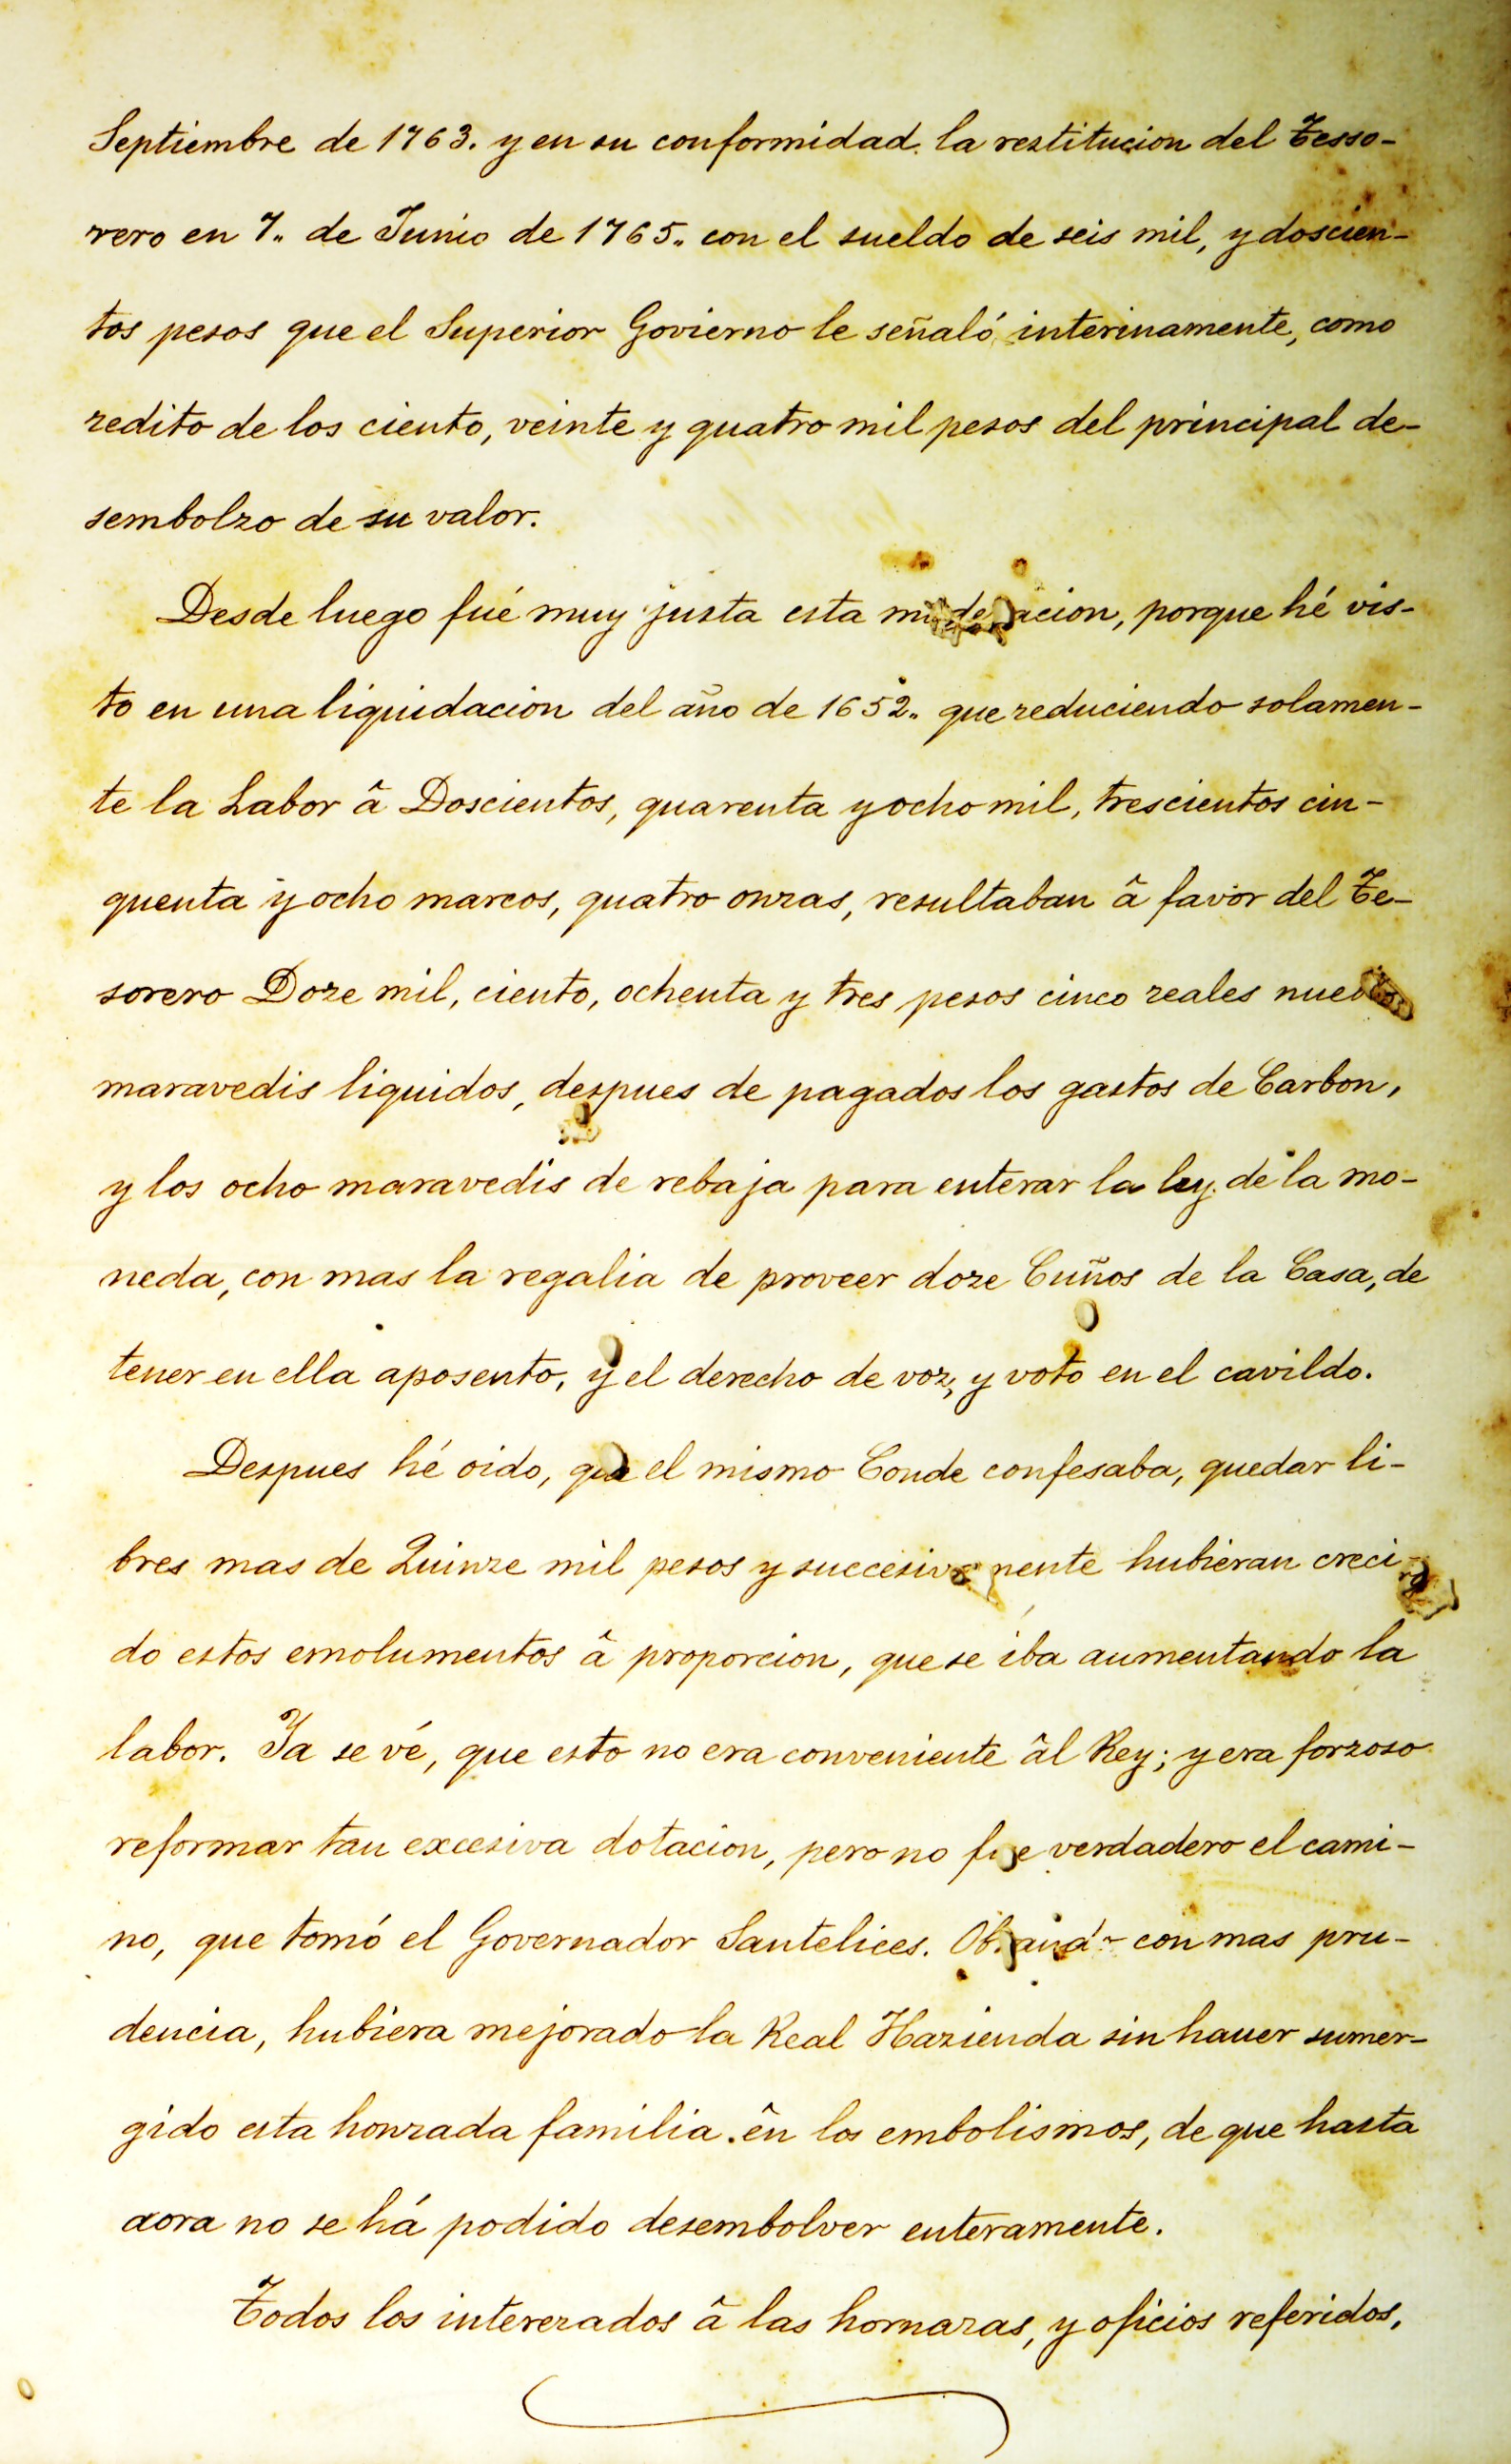 Septiembre de 1763. y en su conformidad. la restitucion del Tesso-
rero en 7.. de Junio de 1765.. con el sueldo de seis mil, y doscien-
tos pesos que el Superior Govierno le señaló interinamente, como
redito de los ciento, veinte y quatro mil pesos del principal de-
sembolzo de su valor.
Desde luego fué muy justa esta moderacion, porque hé vis-
to en una liquidacion del año de 1652.. que reduciendo solamen-
te la Labor â Doscientos, quarenta y ocho mil, trescientos cin-
quenta y ocho marcos, quatro onzas, resultaban â favor del Te-
sorero Doze mil, ciento, ochenta y tres pesos cinco reales
maravedis liquidos, despues de pagados los gastos de Carbon,
y los ocho maravedis de rebaja para enterar la ley de la mo-
neda, con mas la regalia de proveer doze Cuños de la Casa, de
tener en ella aposento, y el derecho de voz, y voto en el cavildo.
Despues hé oido, que el mismo Conde confesaba, quedar li-
bres mas de Quinze mil pesos y succesivamente hubieran creci-
do estos emolumentos â proporcion, que se iba aumentando la
labor. Ya se vé, que esto no era conveniente âl Rey; y era forzoso
reformar tan excesiva dotacion, pero no fue verdadero el cami-
no, que tomó el Governador Santelices. Obrando con mas pru-
dencia, hubiera mejorado la Real Hazienda sin hauer sumer-
gido esta honrada familia. ên los embolismos, de que hasta
aora no se há podido desembolver enteramente.
Todos los interezados â las hornazas, y oficios referidos,